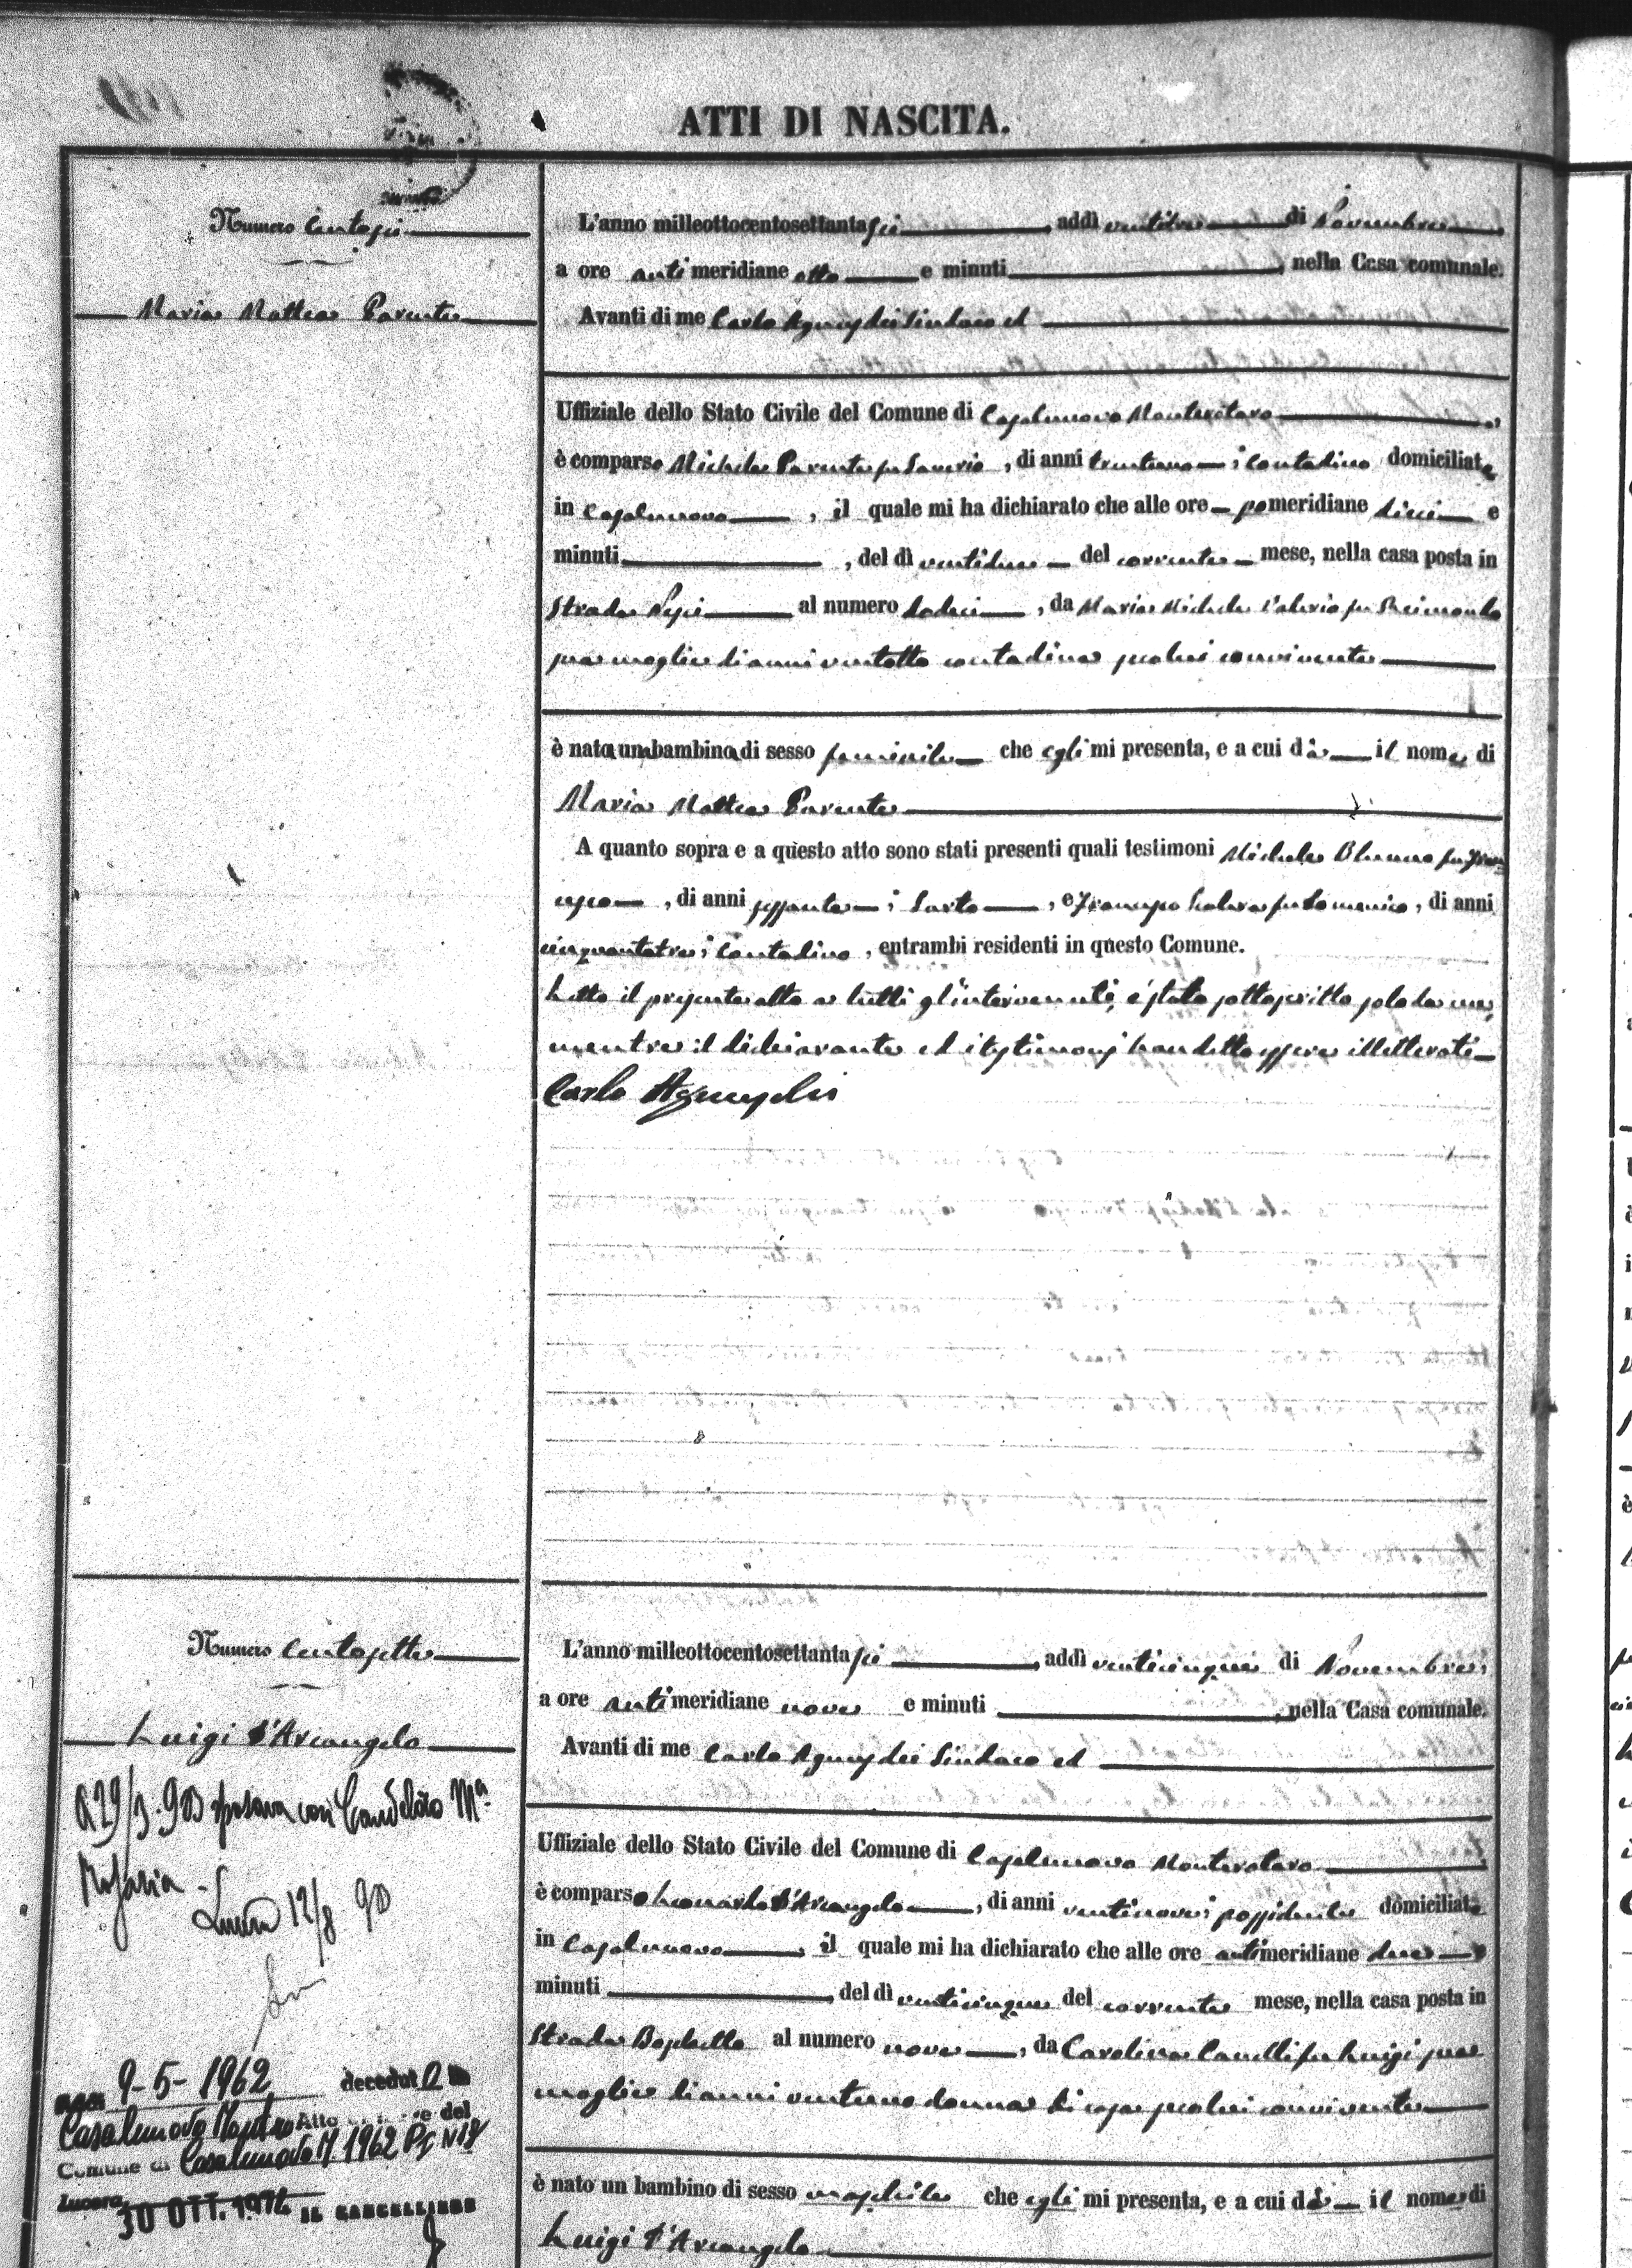 ATTI DI NASCITA.
Numero Centosei
Maria Mattea Parente
L'anno milleottocentosettantasei, addì ventitre di Novembre,
a ore antimeridiane otto e minuti, nella Casa comunale.
Avanti di me Carlo Sindaco ed
Uffiziale dello Stato Civile del Comune di Casalnuovo Monterotaro,
è comparso Michele Parente fu Saverio, di anni trentuno, contadino domiciliato
in Casalnuovo, il quale mi ha dichiarato che alle ore pomeridiane dieci e
minuti, del dì ventidue del corrente mese, nella casa posta in
Strada al numero dodici, da Maria Michela Valerio fu Raimondo
sua moglie di anni ventotto contadina secolui convivente
è nata una bambina di sesso feminile che egli mi presenta, e a cui dà il nome di
Maria Mattea Parente
A quanto sopra e a questo atto sono stati presenti quali testimoni Michele fu Fran
cesco, di anni sessanta, Sarto, e Francesco fu Domenico, di anni
cinquantatre, Contadino, entrambi residenti in questo Comune.
Letto il presente atto a tutti gl'intervenuti, è stato sottoscritto solo da me,
mentre il dichiarante ed i testimonj han detto essere illetterati
Carlo
Numero Centosette
Luigi d'Arcangelo
sposava con Candeloro Mª
Rosaria -
Lucera 12/8
9-5-1962 decedut
Casalnuovo Atto del
Comune di Casalnuovo M. 1962
Lucera 30 OTT. 1972 IL CANCELLIERE
L'anno milleottocentosettantasei, addì venticinque di Novembre,
a ore antimeridiane nove e minuti, nella Casa comunale.
Avanti di me Carlo Sindaco ed
Uffiziale dello Stato Civile del Comune di Casalnuovo Monterotaro
è comparso Leonardo d'Arcangelo, di anni ventinove, possidente domiciliato
in Casalnuovo, il quale mi ha dichiarato che alle ore antimeridiane due e
minuti, del dì venticinque del corrente mese, nella casa posta in
Strada al numero nove, da Carolina fu Luigi sua
moglie di anni ventuno donna di casa secolui convivente
è nato un bambino di sesso maschile che egli mi presenta, e a cui dà il nome di
Luigi d'Arcangelo